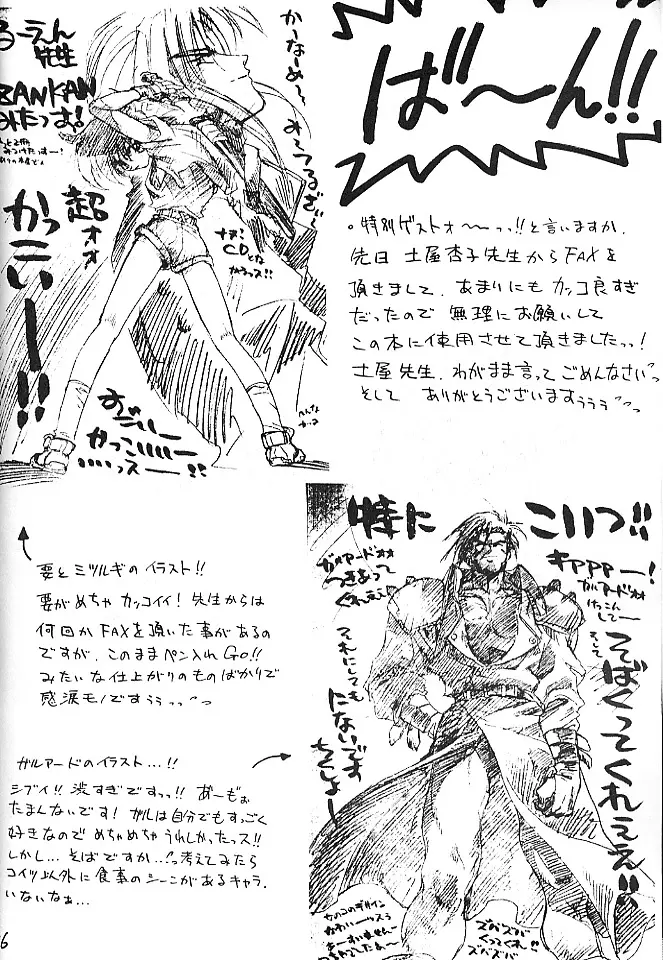 ば〜ん!!
。特別ゲストォ〜っっ!!と言いますか、
先日 土屋杏子先生からFAXを
頂きまして、あまりにも カッコ良すぎ
だったので 無理にお願いして
この本に使用させて頂きましたっっ!
土屋先生、わがまま言って ごめんなさいっ
そして ありがとうございますぅぅぅ
るーえん
先生
ZANKAN
みたっす!
かーなめ〜
みてつるぎぃ〜
超ォォ
かっこいー!!
CDとな
すっごいー
かっこいいいー
いいっスー!!
要とミツルギの イラスト!!
要がめちゃ カッコイイ! 先生からは
何回かFAXを頂いた事があるの
ですが、このままペン入れGo!!
みたいな仕上がりのものばかりで
感涙モノですぅぅっっ
特に こいつ!!
ガルアードォォ
つきあって
くれぇぇ
キャアアアー!
ガルアードォォ
けっこん
してー
そして
そばくってくれええ!!
それにしても
にないです
ちくしょー
ガルアードのイラスト...!!
シブイ!! 渋すぎですっっ!! あーもぉ
たまんないです! ガルは自分でもすっごく
好きなので めちゃめちゃ うれしかったっス!!
しかし... そばですか...っ考えてみたら
コイツ以外に食事のシーンがあるキャラ、
いないなぁ...
女のコのデザイン
かわいーっスぅ
ズバズバ
くってくれ!!
ズバズバ
6